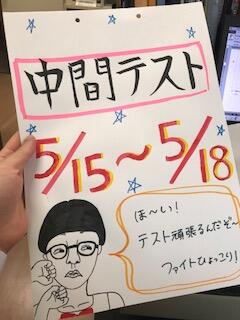 中間テスト
5/15～5/18
ほ～い!
テスト頑張るんだぞ～
ファイトひょっこり!